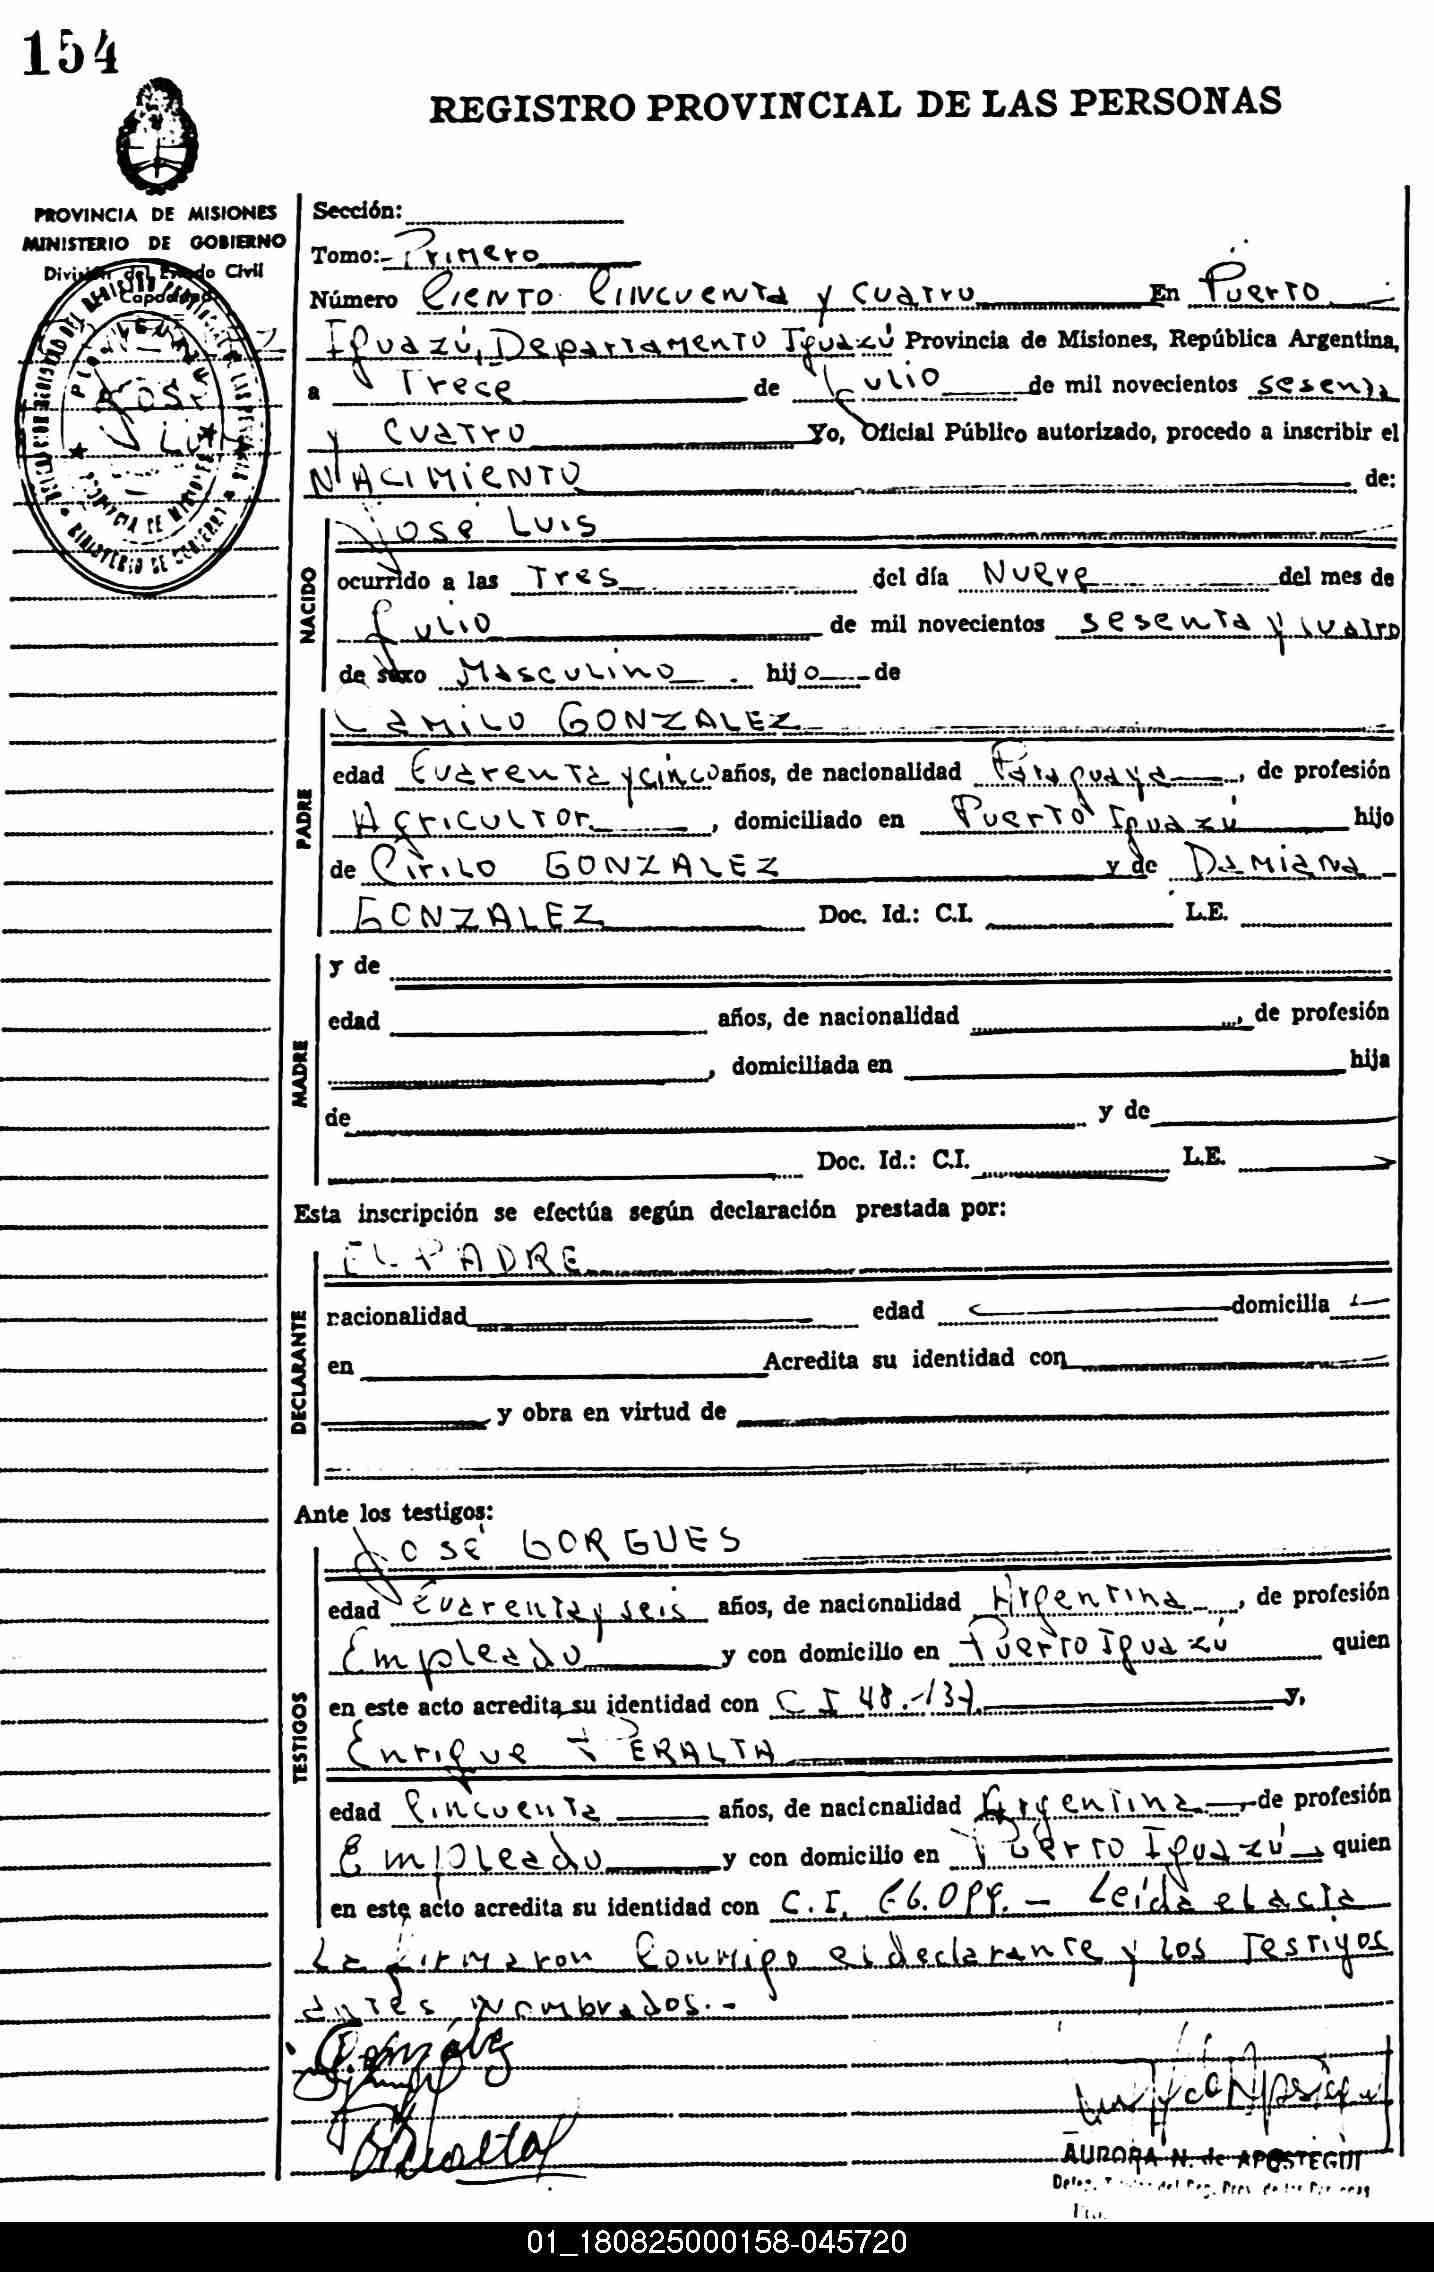 154
REGISTRO PROVINCIAL DE LAS PERSONAS
PROVINCIA DE MISIONES
MINISTERIO DE GOBIERNO
División del Estado Civil
Capacidad
Sección:
Tomo: Primero
Número Ciento Cincuenta y cuatro En Puerto
Iguazú, Departamento Iguazú Provincia de Misiones, República Argentina,
a Trece de Julio de mil novecientos sesenta
y cuatro Yo, Oficial Público autorizado, procedo a inscribir el
NACIMIENTO de:
NACIDO
José Luis
ocurrido a las Tres del día Nueve del mes de
Julio de mil novecientos sesenta y cuatro
de sexo Masculino hijo de
PADRE
Camilo GONZALEZ
edad Cuarenta y cinco años, de nacionalidad Paraguaya, de profesión
Agricultor, domiciliado en Puerto Iguazú hijo
de Cirilo GONZALEZ y de Damiana
GONZALEZ Doc. Id.: C.I. L.E.
MADRE
y de
edad años, de nacionalidad , de profesión
, domiciliada en hija
de y de
Doc. Id.: C.I. L.E.
Esta inscripción se efectúa según declaración prestada por:
DECLARANTE
EL PADRE
nacionalidad edad domicilia
en Acredita su identidad con
y obra en virtud de
Ante los testigos:
TESTIGOS
José GORGUES
edad Cuarenta y seis años, de nacionalidad Argentina, de profesión
Empleado y con domicilio en Puerto Iguazú quien
en este acto acredita su identidad con C I 48.-137. y,
Enrique PERALTA
edad Cincuenta años, de nacionalidad Argentina, de profesión
Empleado y con domicilio en Puerto Iguazú quien
en este acto acredita su identidad con C.I. - Leída el acta
La firmaron Conmigo el declarante y los Testigos
antes nombrados.-
González
Peralta
AURORA N. de APOSTEGUI
01_180825000158-045720